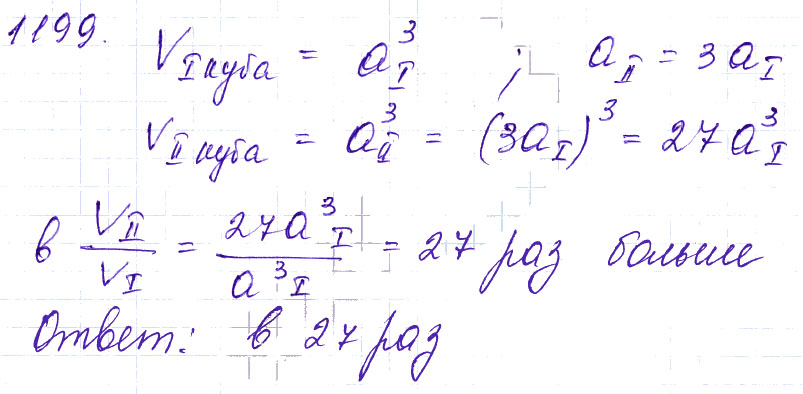 1199. V_I куба = a_I^3 ; a_II = 3a_I
V_II куба = a_II^3 = (3a_I)^3 = 27a_I^3
в V_II/V_I = 27a^3_I/a^3_I = 27 раз больше
Ответ: в 27 раз